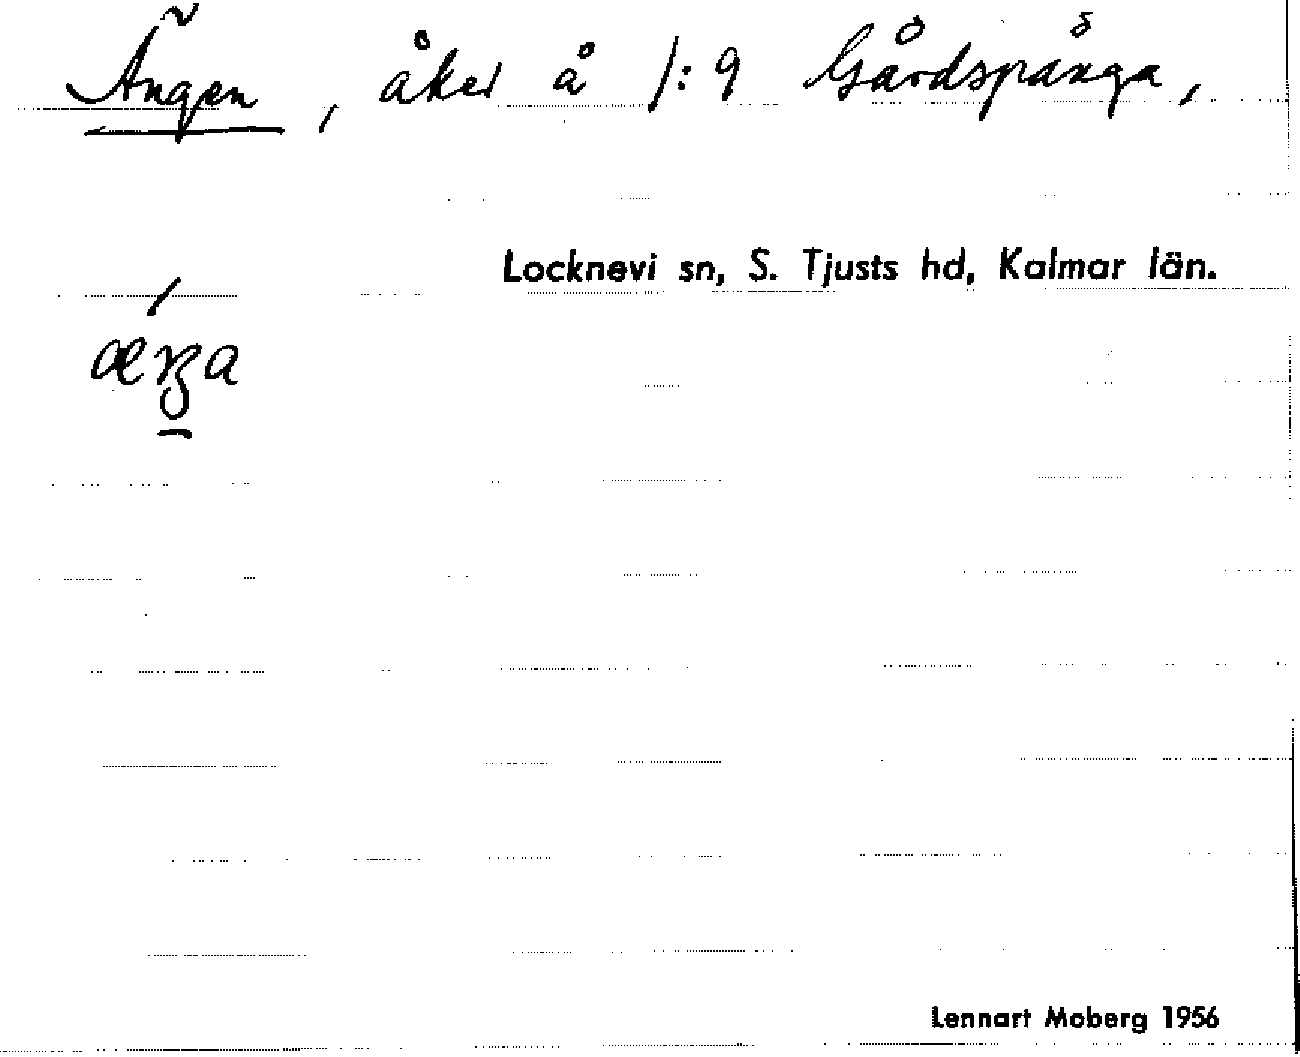 Ängen, åker å 1:9 Gårdspånga,
Locknevi sn, S. Tjusts hd, Kalmar län.
Lennart Moberg 1956